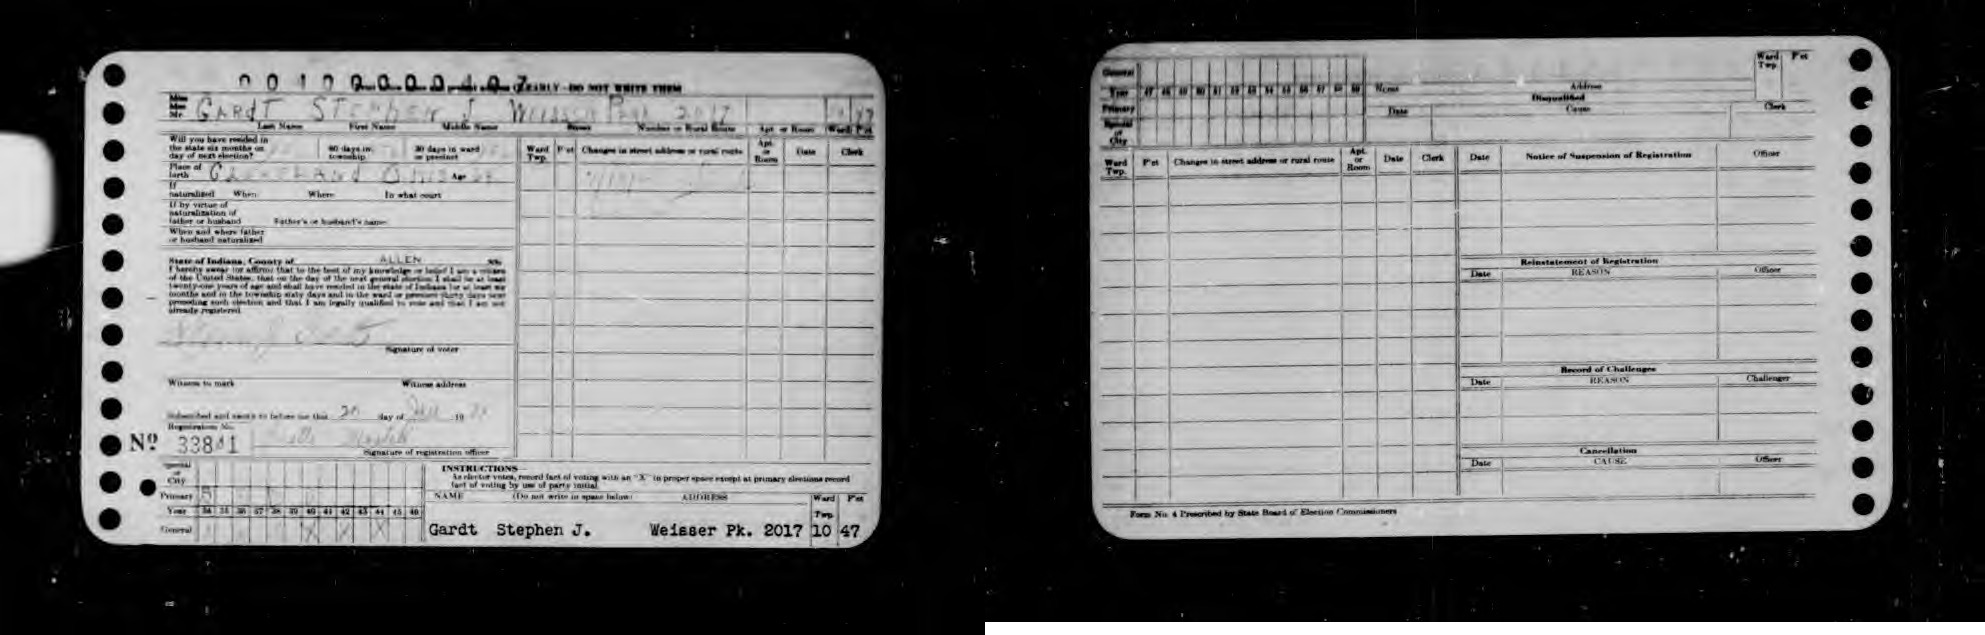 WRITE CLEARLY - DO NOT WRITE THEM
Miss
Mrs.
Mr. GARDT STEPHEN J WEISSER PARK 2017 10 47
Last Name First Name Middle Name Street Number or Rural Route Apt. or Room Ward Pct
Will you have resided in
the state six months on
day of next election?
60 days in
township
30 days in ward
or precinct
Place of
birth CLEVELAND OHIO Age
If
naturalized When Where In what court
If by virtue of
naturalization of
father or husband Father's or husband's name
When and where father
or husband naturalized
State of Indiana, County of ALLEN SS:
I hereby swear (or affirm) that to the best of my knowledge or belief I am a citizen
of the United States, that on the day of the next general election I shall be at least
twenty-one years of age and shall have resided in the state of Indiana for at least six
months and in the township sixty days and in the ward or precinct thirty days next
preceding such election and that I am legally qualified to vote and that I am not
already registered
Signature of voter
Witness to mark Witness address
Subscribed and sworn to before me this 20 day of 19
Registration No.
No 33841
Signature of registration officer
Ward
Twp. Pct Changes in street address or rural route Apt.
or
Room Date Clerk
Special
or
City
Primary R
Year 34 35 36 37 38 39 40 41 42 43 44 45 46
General X X X
INSTRUCTIONS
As elector votes, record fact of voting with an "X" in proper space except at primary elections record
fact of voting by use of party initial.
NAME (Do not write in space below) ADDRESS Ward
Twp. Pct
Gardt Stephen J. Weisser Pk. 2017 10 47
General
Year 47 48 49 50 51 52 53 54 55 56 57 58 59
Primary
Special
or
City
Name Address
Ward
Twp. Pct
Disqualified
Date Cause Clerk
Ward
Twp. Pct Changes in street address or rural route Apt.
or
Room Date Clerk
Date Notice of Suspension of Registration Officer
Reinstatement of Registration
Date REASON Officer
Record of Challenges
Date REASON Challenger
Cancellation
Date CAUSE Officer
Form No. 4 Prescribed by State Board of Election Commissioners